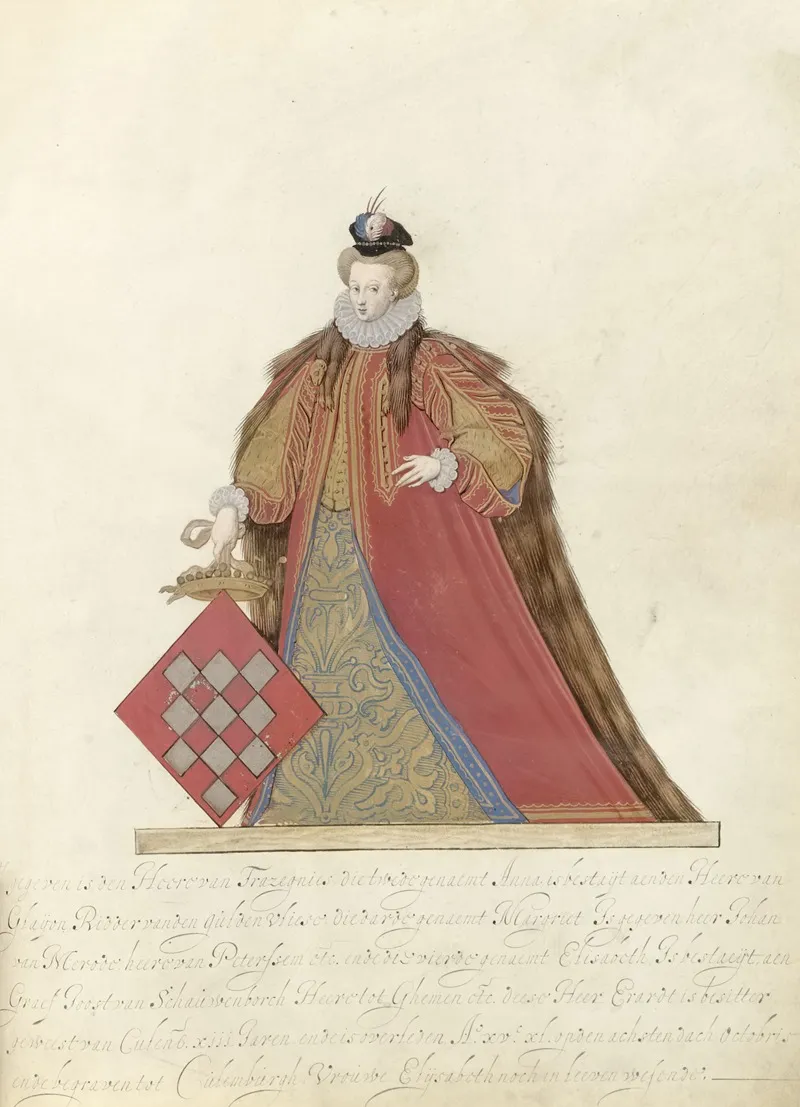 gegeven is den Heere van Trazegnies die twede genaemt Anna is bestayt aenden Heere van
Glayon Ridder vanden gulden vliese die darde genaemt Margriet Is gegeven heer Johan
van Merode heere van Peterssem etc. ende die vierde genaemt Elisabeth Is bestaeyt aen
Graef Joost van Schauwenborch Heere tot Ghemen etc. deese Heer Erardt is besitter
geweest van Culenb. xiii Jaren ende is overleden Ao xvc xl. opden achsten dach Octobris
ende begraven tot Culemburgh Vrouwe Elysabeth noch in leeven wesende.